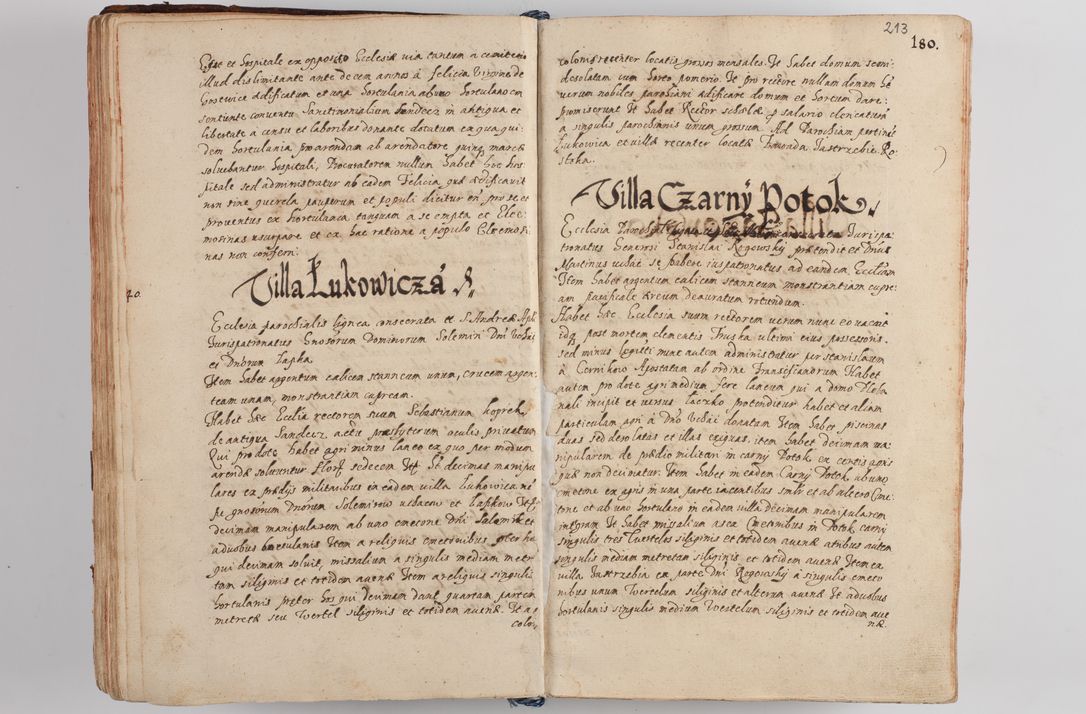 Est et hospitale ex opposito Ecclesiæ via tantum a cemiterio
illud dislimitante ante decem annos á felicia
ædificatum et una hortulania ab uno hortulano con
sentiente conventu Sanctimonialium Sandecz in antiqua et
libertate a censu et laboribus donante dotatum ex qua qui
dem hortulania pro arendam ab arendatore quinq marcæ
solvebantur hospitali, Procuratorem nullum habet hoc hos
pitale sed administratur ab eadem Felicia quæ ædificavit
non sine querela pauperum et populi dicitur en̄ pro se et
proventus ex hortulanea tanquam a se empta et Elee
mosinas usurpare et ea hac ratione a populo Eleemosi
nas non conferri.
Villa Łukowicza
20.
Ecclesia parochialis lignea consecrata tt S. Andreæ Apłi
Jurispatronatus Gnosorum Dominorum Solemiri Dni
et Dnorum Łapka
Item habet argentum calicem stanneum unum, crucem argen
team unam, monstrantiam cupream.
Habet hæc Ecclia rectorem suum Sebastianum koprek
de antiqua Sandecz actu præsbyterum oculis privatum
Qui pro dote habet agri minus laneo ex quo per modum
arendæ solvuntur flor̄ sedecem It̄ Ht decimas manipu
lares ex prædijs militaribus in eadem villa Łukowica
pe gnosorum Dnorum Solemirow et Łapkow It̄
decimam manipularem ab uno cmetone Dni Salomir et
a duobus hortulanis Item a reliquis cmetonibus præter hos
qui decimam solvit, missalium a singulis mediam metre
tam siliginis et totidem avenæ Item a reliquis singulis
hortulanis præter hos qui decimam dant quartam partem
metretæ seu Wertel siliginis et totidem avenæ. It a
colon
213
180.
colonis recenter locatis grosos mensales. It habet domum semi
desolatam cum horto pomerio. It pro rectore nullam domum
verum nobiles parochiani ædificare domum et hortum dare
promiserunt It habet Rector scholæ p salario clericaturam
a singulis parochianis unum grossum Ad Parochiam pertinet
Łukowica et villæ recenter locatæ Jastrzebie Ro
stoka.
Villa Czarny Potok.
Ecclesia Parochial consecrata Jurispa
tronatus Generosi Stanislai Rogowsky prætendit et Dnus
Martinus se habere ius patronatus ad eandem Eccliam
Item habet argentum calicem stanneum monstrantiam cupre
am pacificale æreum deauratum rotundum.
Habet hæc Ecclesia suum rectorem verum nunc eo vacavit
idq post mortem clementis Fruska ultimi eius possessoris.
sed minus legitti nunc autem administratur per stanislaum
á Apostatam ab ordine Franciscanorum Habet
autem pro dote agri medium fere laneum qui a domo Pleba
nali incipit et versus Łaczko protenditur habet et aliam
particulam agri á Dno dotatam Item habet piscinas
duas sed desolatas et illas exiguas, item habet decimam ma
nipularem de prædio militari in carny Potok ex certis agris
quæ non decimatur Item habet in eadem Carny Potok ab uno
cmetone ex agris in una parte iacentibus smłr et ab altero Cme
tone et ab uno hortulano in eadem villa decimam manipularem
integram It habet missalium a sex Cmetonibus in Potok carny
singulis tres Wertelos siliginis et totidem avenæ a tribus autem
singulis mediam metretam siliginis et totidem avenæ Item ea
villa Jastrzebia ex parte Dni Rogowsky á singulis cmeto
nibus unum Wertelum siliginis et alterum avenæ It a duobus
hortulanis singulis medium Wertelum siliginis et totidem ave
næ.